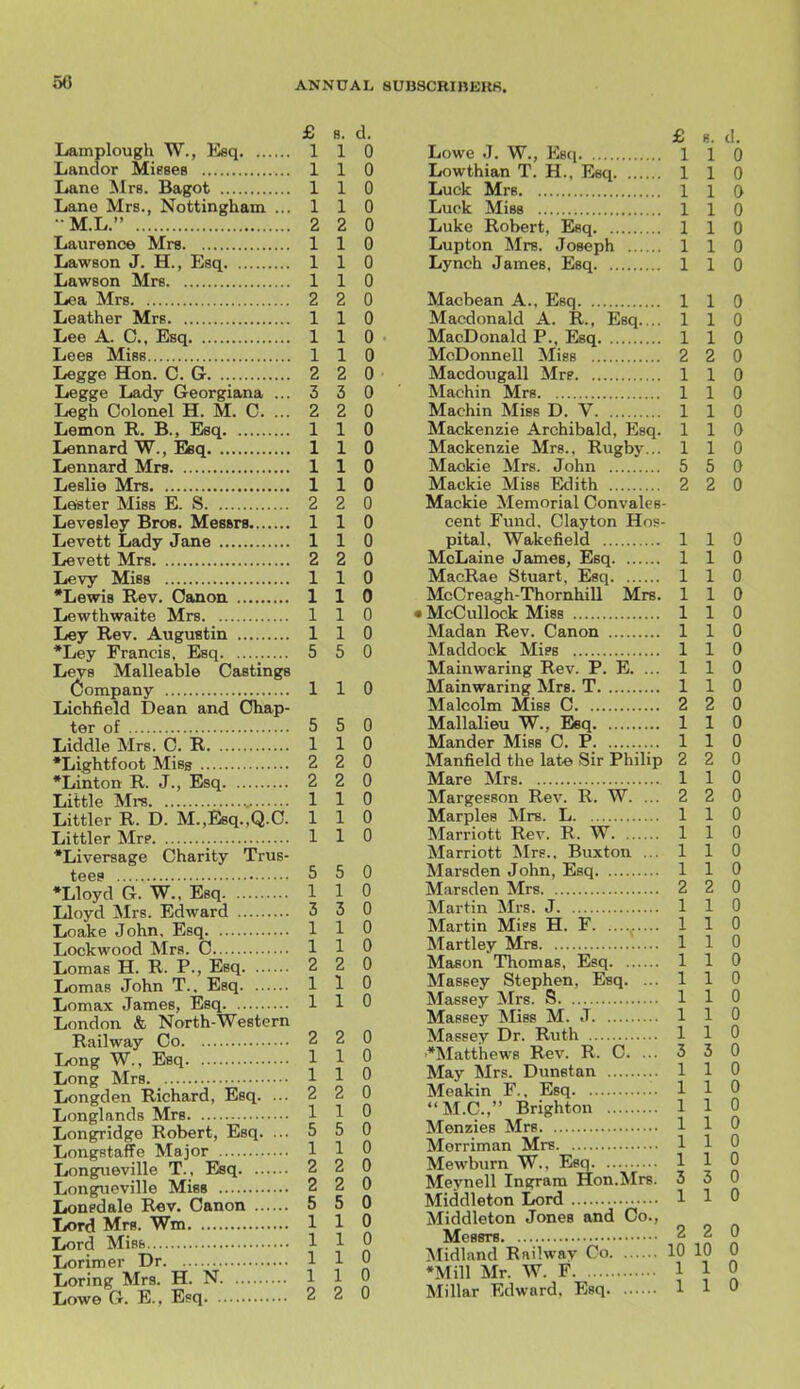 56 ANNUAL SUBSCRIBERS.
£ s. d.
Lamplough W., Esq. ...... 1 1 0
Landor Misses ............... 1 1 0
Lane Mrs. Bagot ............ 1 1 0
Lane Mrs., Nottingham ... 1 1 0
"M.L." ........................ 2 2 0
Laurence Mrs. ............... 1 1 0
Lawson J. H., Esq. ......... 1 1 0
Lawson Mrs. .................. 1 1 0
Lea Mrs. ...................... 2 2 0
Leather Mrs. .................. 1 1 0
Lee A. C., Esq. ............... 1 1 0
Lees Miss...................... 1 1 0
Legge Hon. C. G. ............ 2 2 0
Legge Lady Georgiana ... 3 3 0
Legh Colonel H. M. C. ... 2 2 0
Lemon R. B., Esq. ......... 1 1 0
Lennard W., Esq. ............ 1 1 0
Lennard Mrs. ............... 1 1 0
Leslie Mrs. .................. 1 1 0
Lester Miss E. S. ............ 2 2 0
Levesley Bros. Messrs....... 1 1 0
Levett Lady Jane ............ 1 1 0
Levett Mrs. .................. 2 2 0
Levy Miss ..................... 1 1 0
*Lewis Rev. Canon ......... 1 1 0
Lewthwaite Mrs. ............ 1 1 0
Ley Rev. Augustin ......... 1 1 0
*Ley Francis, Esq. ......... 5 5 0
Leys Malleable Castings
Company .................. 1 1 0
Lichfield Dean and Chap-
ter of ........................ 5 5 0
Liddle Mrs. C. R. ............ 1 1 0
*Lightfoot Miss ............... 2 2 0
*Linton R. J., Esq. ......... 2 2 0
Little Mrs. .................. 1 1 0
Littler R. D. M.,Esq.,Q.C. 1 1 0
Littler Mrs. .................. 1 1 0
*Liversage Charity Trus-
tees ........................ 5 5 0
*Lloyd G. W., Esq. ......... 1 1 0
Lloyd Mrs. Edward ......... 3 3 0
Loake John, Esq. ............ 1 1 0
Lockwood Mrs. C............. 1 1 0
Lomas H. R. P., Esq. ...... 2 2 0
Lomas John T., Esq. ...... 1 1 0
Lomax James, Esq. ......... 1 1 0
London & North-Western
Railway Co. ............... 2 2 0
Long W., Esq. ............... 1 1 0
Long Mrs. ..................... 1 1 0
Longden Richard, Esq. ... 2 2 0
Longlands Mrs. ............... 1 1 0
Longridge Robert, Esq. ... 5 5 0
Longstaffe Major ............ 1 1 0
Longueville T., Esq. ...... 2 2 0
Longueville Miss ............ 2 2 0
Lonsdale Rev. Canon ...... 5 5 0
Lord Mrs. Wm. ............... 1 1 0
Lord Miss...................... 1 1 0
Lorimer Dr. .................. 1 1 0
Loring Mrs. H. N. ......... 1 1 0
Lowe G. E., Esq. ............ 2 2 0
£ s. d.
Lowe J. W., Esq. ............ 1 1 0
Lowthian T. H., Esq. ...... 1 1 0
Luck Mrs. ..................... 1 1 0
Luck Miss ..................... 1 1 0
Luke Robert, Esq. ......... 1 1 0
Lupton Mrs. Joseph ...... 1 1 0
Lynch James, Esq. ......... 1 1 0
Macbean A., Esq. ............ 1 1 0
Macdonald A. R., Esq.... 1 1 0
MacDonald P., Esq. ......... 1 1 0
McDonnell Miss ............ 2 2 0
Macdougall Mrs. ............ 1 1 0
Machin Mrs. .................. 1 1 0
Machin Miss D. V. ......... 1 1 0
Mackenzie Archibald, Esq. 1 1 0
Mackenzie Mrs., Rugby... 1 1 0
Mackie Mrs. John ......... 5 5 0
Mackie Miss Edith ......... 2 2 0
Mackie Memorial Convales-
cent Fund, Clayton Hos-
pital, Wakefield ......... 1 1 0
McLaine James, Esq. ...... 1 1 0
MacRae Stuart, Esq. ...... 1 1 0
McCreagh-Thornhill Mrs. 1 1 0
McCullock Miss ............... 1 1 0
Madan Rev. Canon ......... 1 1 0
Maddock Miss ............... 1 1 0
Mainwaring Rev. P. E. ... 1 1 0
Mainwaring Mrs. T. ......... 1 1 0
Malcolm Miss C. ............ 2 2 0
Mallalieu W., Esq. ......... 1 1 0
Mander Miss C. P. ......... 1 1 0
Manfield the late Sir Philip 2 2 0
Mare Mrs. .................. 1 1 0
Margesson Rev. R. W. ... 2 2 0
Marples Mrs. L. ............ 1 1 0
Marriott Rev. R. W. ...... 1 1 0
Marriott Mrs., Buxton ... 1 1 0
Marsden John, Esq. ......... 1 1 0
Marsden Mrs. ............... 2 2 0
Martin Mrs. J. ............... 1 1 0
Martin Miss H. F. ......... 1 1 0
Martley Mrs. .................. 1 1 0
Mason Thomas, Esq. ...... 1 1 0
Massey Stephen, Esq. ... 1 1 0
Massey Mrs. S. ............... 1 1 0
Massey Miss M. J. ......... 1 1 0
Massey Dr. Ruth ............ 1 1 0
*Matthews Rev. R. C. ... 3 3 0
May Mrs. Dunstan ......... 1 1 0
Meakin F., Esq. ............ 1 1 0
"M.C.," Brighton ......... 1 1 0
Menzies Mrs. .................. 1 1 0
Merriman Mrs. ............... 1 1 0
Mewburn W., Esq. ......... 1 1 0
Meynell Ingram Hon.Mrs. 3 3 0
Middleton Lord ............... 1 1 0
Middleton Jones and Co.,
Messrs. ..................... 2 2 0
Midland Railway Co. ...... 10 10 0
*Mill Mr. W. F. ............ 1 1 0
Millar Edward, Esq. ...... 1 1 0